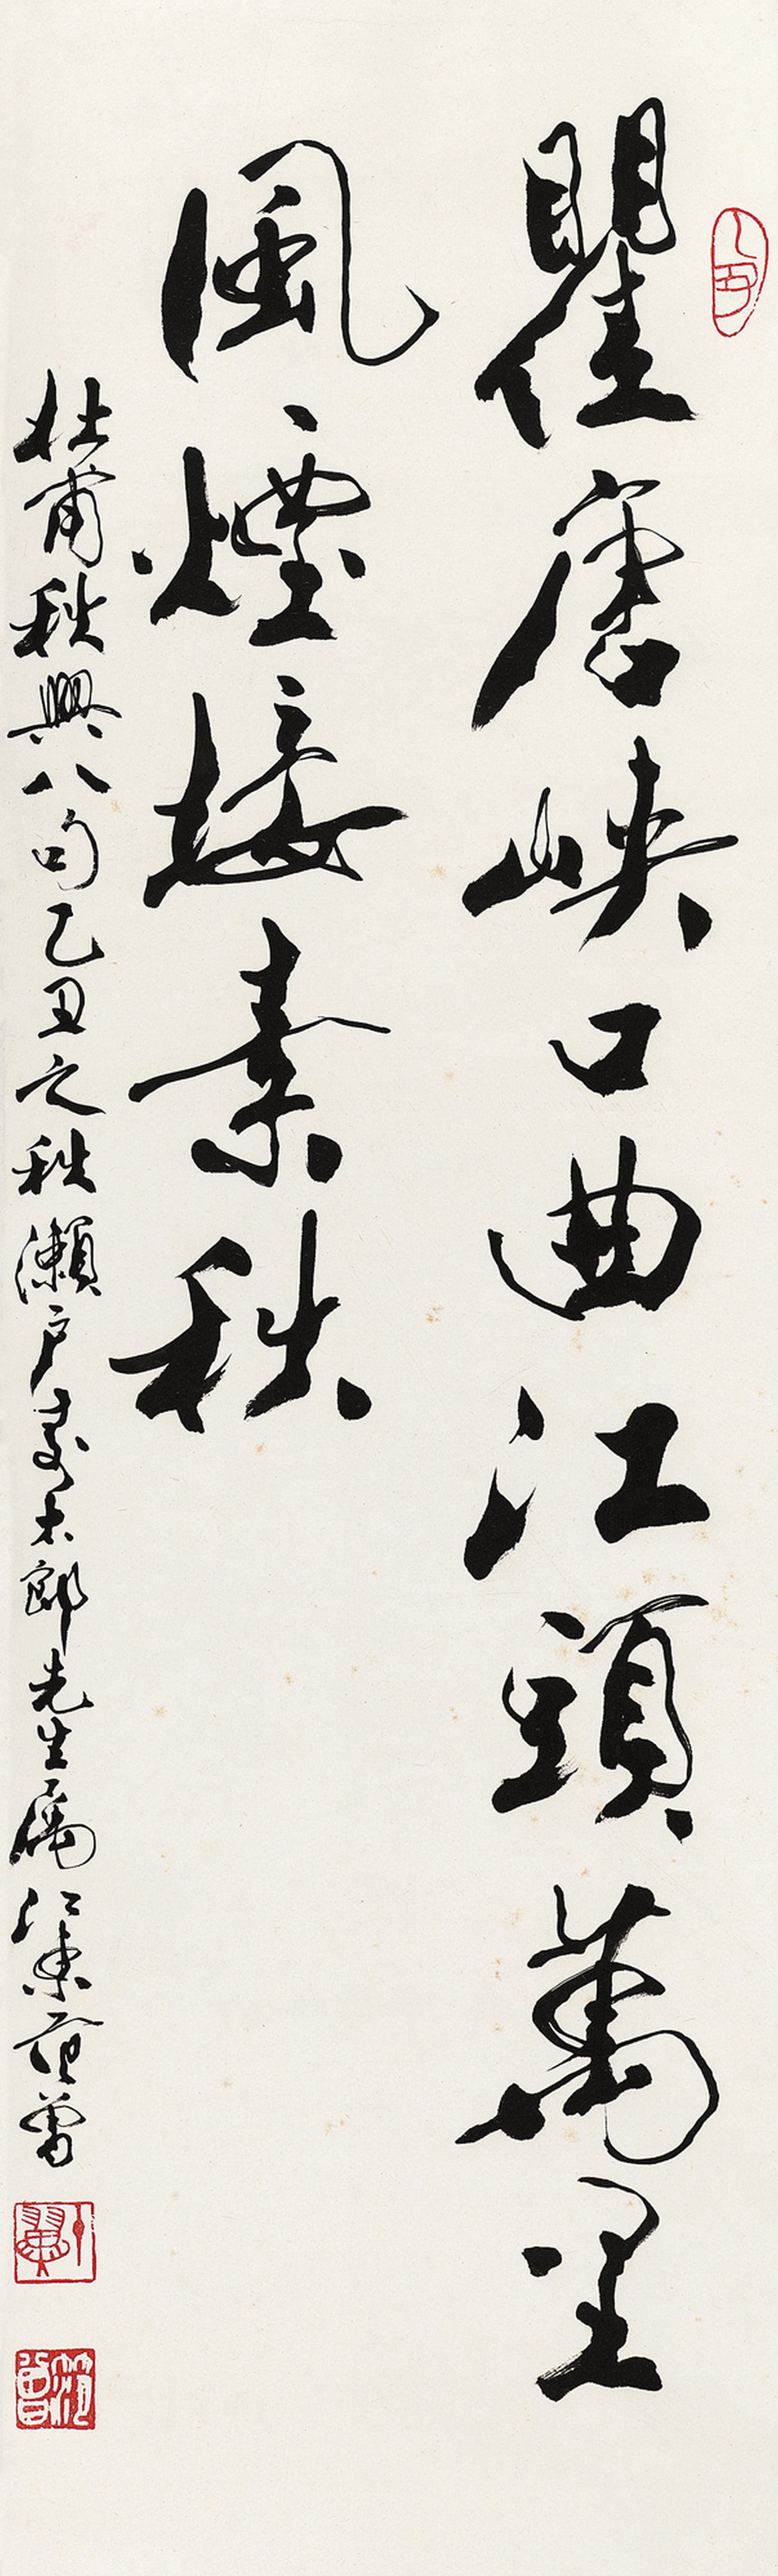 瞿唐峽口曲江頭萬里
風煙接素秋
杜甫秋興八句乙丑之秋瀨戶壽太郎先生屬江東范曾
范曾